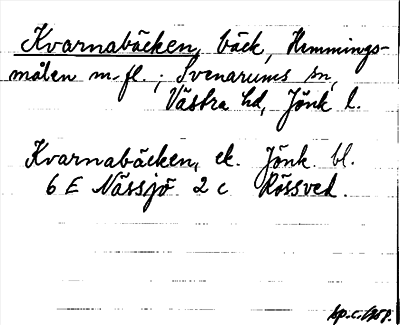 Kvarnabäcken, bäck, Hemmings-
målen m. fl.; Svenarums sn,
Västra hd, Jönk l.
Kvarnabäcken, ek. Jönk. bl.
6 E Nässjö 2 c Rössved.